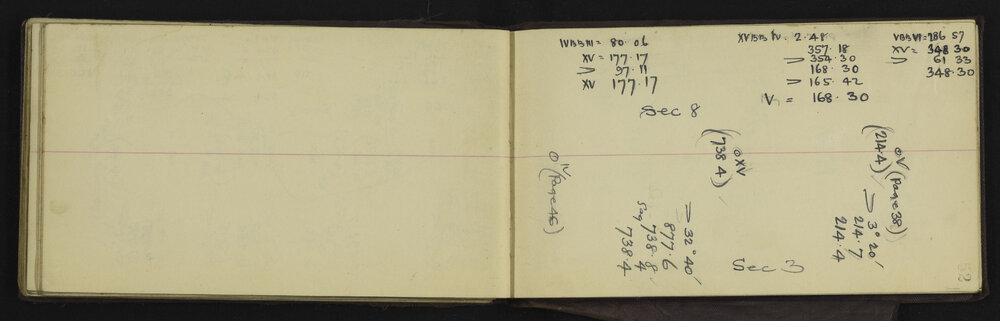 IVBBVI = 80·06
XV = 177·17
> 97·11
XV 177·17
XVBBIV · 2·48
357·18
> 354·30
168·30
> 165·42
V = 168·30
VBBVI = 286 57
XV = 348 30
> 61 33
348·30
Sec 8
⊙IV
(Page 46)
> 32°40'
877·6
Say 738·8
738·4
⊙XV
(738·4)
Sec 3
⊙V (Page 38)
(214·4)
> 3°20'
214·7
214·4
52